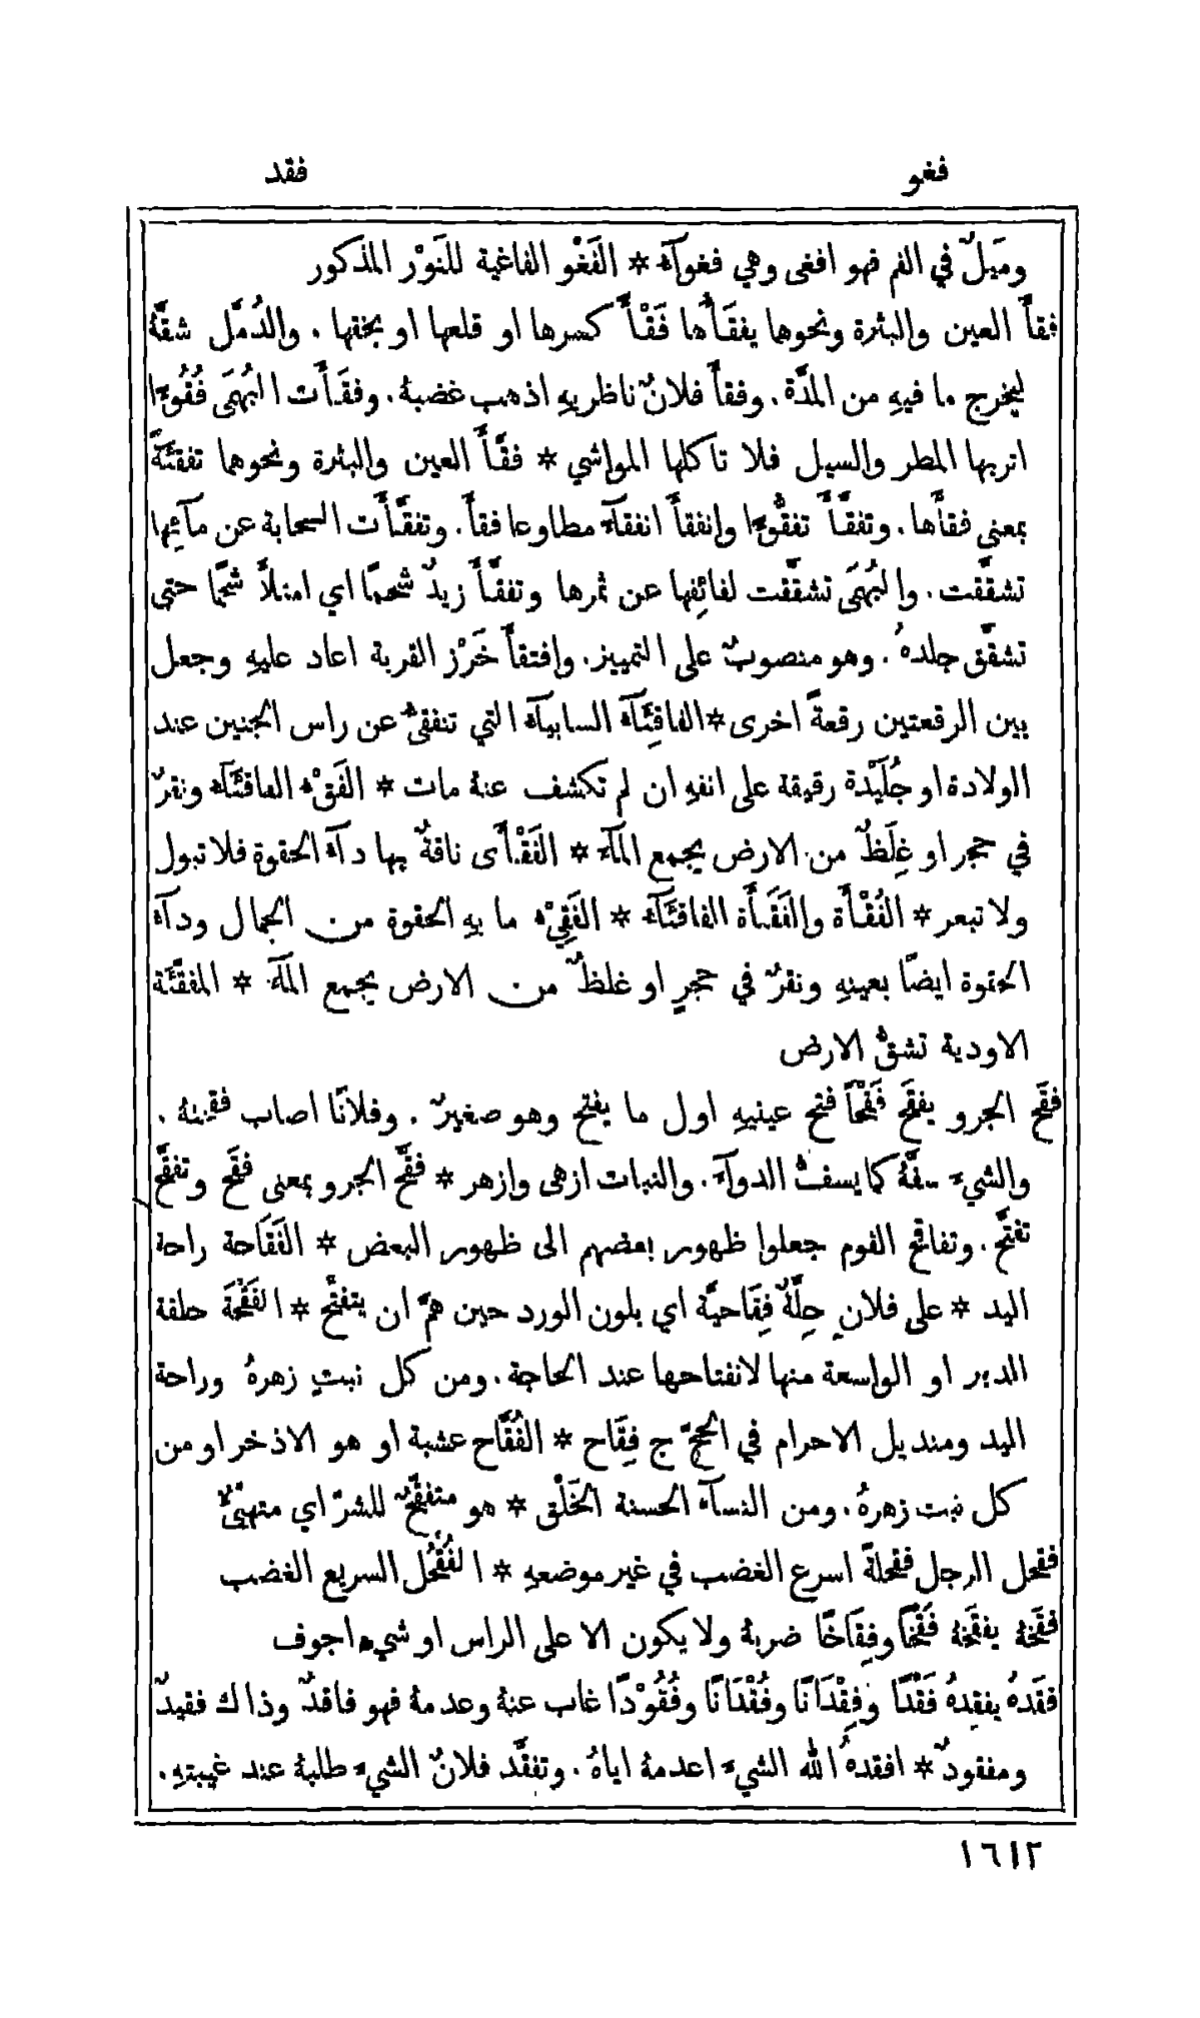 فغو
فقد
ومَيَلٌ في الفم فهو افغى وهي فغوآء * الفَغْو الفاغية للنَوْر المذكور
فقأَ العين والبثرة ونحوها يفقَأُها فَقْأً كسرها او قلعها او بخقها . والدُمَّل شقَّهُ
ليخرج ما فيهِ من المدَّة . وفقأَ فلانٌ ناظريهِ اذهب غضبهُ . وفقَأَت البُهمَى فُقُوءًا
اتربها المطر والسيل فلا تاكلها المواشي * فقَّأَ العين والبثرة ونحوها تفقئَةً
بمعنى فقأَها . وتفقَّأَ تفقُّوءًا وانفقأَ انفقآءً مطاوعا فقأَ . وتفقَّأَت السحابة عن مآئِها
تشقَّقت . والبُهمَى تشقَّقت لفائِفها عن ثمرها وتفقَّأَ زيدٌ شحمًا اي امتلأَ شحمًا حتى
تشقَّق جلدهُ . وهو منصوبٌ على التمييز . وافتقأَ خَرْز القربة اعاد عليهِ وجعل
بين الرقعتين رقعةً اخرى * الفاقِئَآء السابيآء التي تنفقئُ عن راس الجنين عند
الولادة او جُلَيْدة رقيقة على انفهِ ان لم تكشف عنهُ مات * الفَقْء الفاقئَآء ونقرٌ
في حجر او غِلَظٌ من الارض يجمع المآء * الفَقْأَى ناقةٌ بها دآء الحقوة فلا تبول
ولا تبعر * الفُقْأَة والفَقَأَة الفاقئَآء * الفَقِيْء ما بهِ الحقوة من الجمال ودآء
الحقوة ايضًا بعينهِ ونقرٌ في حجرٍ او غلظٌ من الارض يجمع المآء * المفقِّئَة
الاودية تشقُّ الارض
فقَح الجرو يفقَح فَقْحًا فتح عينيهِ اول ما يفتح وهو صغيرٌ . وفلانًا اصاب فقحتهُ .
والشيء سفَّهُ كما يسفُّ الدوآء . والنبات ازهى وازهر * فقَّح الجرو بمعنى فقَح وتفقَّح
تفتَّح . وتفاقح القوم جعلوا ظهور بعضهم الى ظهور البعض * الفَقَاحة راحة
اليد * على فلانٍ حِلَّةٌ فِقَاحيَّة اي بلون الورد حين همَّ ان يتفتَّح * الفَقْحَة حلقة
الدبر او الواسعة منها لانفتاحها عند الحاجة . ومن كل نبتٍ زهرهُ وراحة
اليد ومنديل الاحرام في الحجّ ج فِقَاح * الفُقَّاح عشبة او هو الاذخر او من
كل نبت زهرهُ . ومن النسآء الحسنة الخَلْق * هو متفقِّحٌ للشرّ اي متهيّئٌ
فقحل الرجل فقحلةً اسرع الغضب في غير موضعهِ * الفُقْحُل السريع الغضب
فقَخهُ يفقَخهُ فَقْخًا وفِقَاخًا ضربهُ ولا يكون الا على الراس او شيء اجوف
فقَدهُ يفقِدهُ فَقْدًا وفِقْدَانًا وفُقْدَانًا وفُقُوْدًا غاب عنهُ وعدمهُ فهو فاقدٌ وذاك فقيدٌ
ومفقودٌ * افقدهُ الله الشيء اعدمهُ اياهُ . وتفقَّد فلانٌ الشيء طلبهُ عند غيبتهِ .
١٦١٢